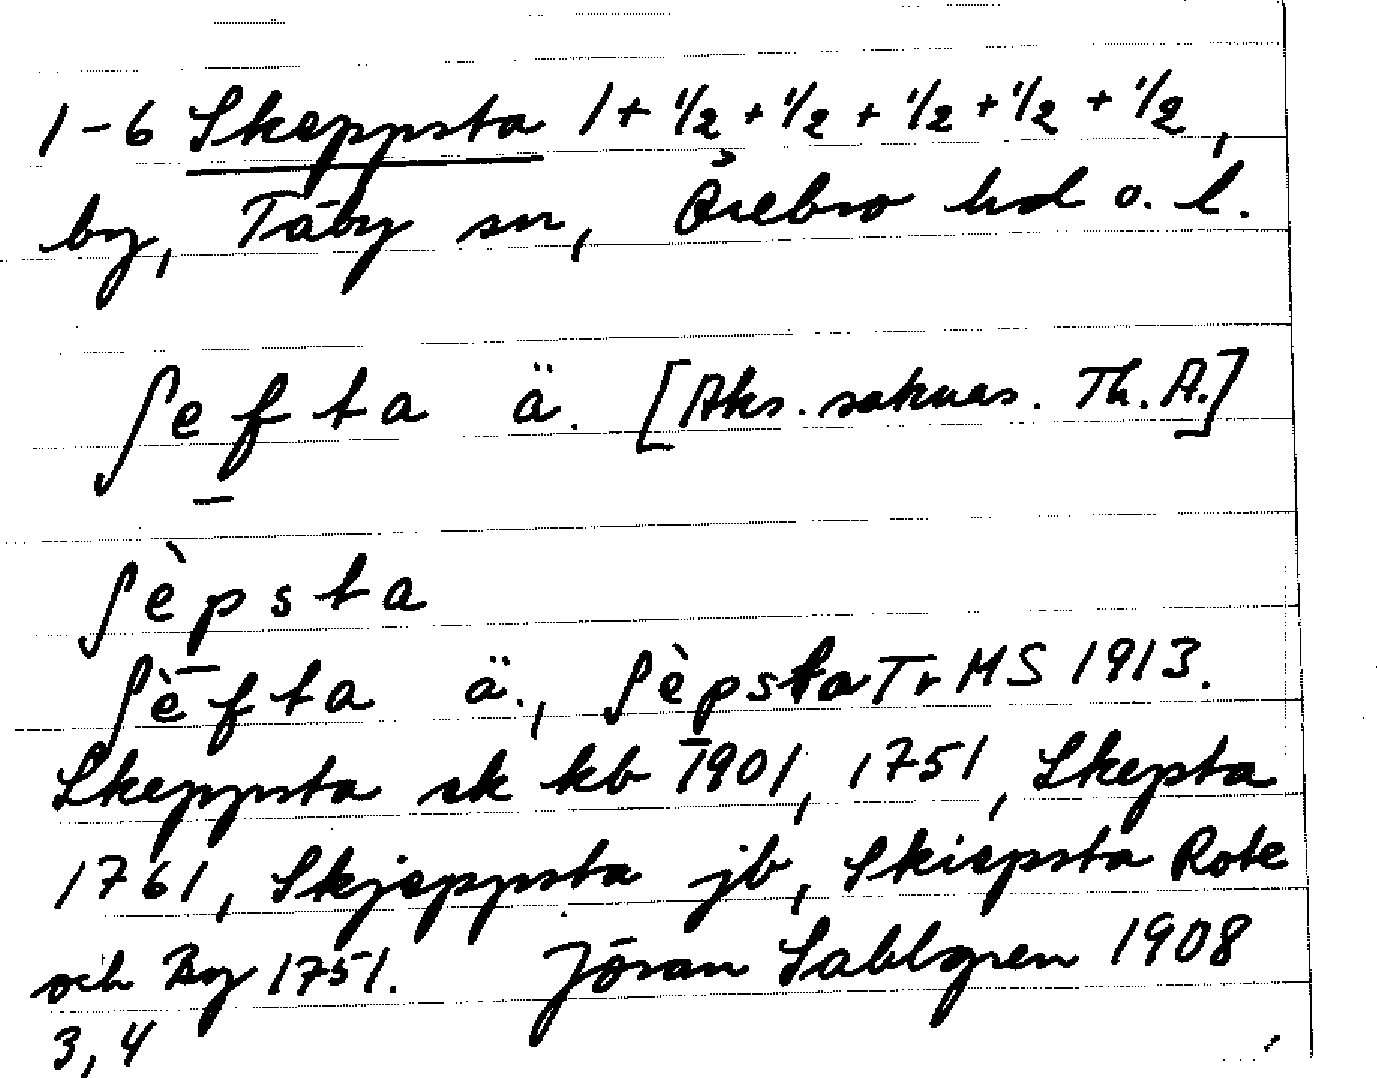 1-6 Skeppsta 1+½+½+½+½+½,
by, Täby sn, Örebro hd o. l.
ʃefta ä. [Aks. saknas. Th. A.]
ʃèpsta
ʃèfta ä., ʃèpsta Tr MS 1913.
Skeppsta sk kb 1901, 1751, Skepsta
1761, Skjeppsta jb, Skiepsta Rote
och By 1751. Jöran Sahlgren 1908
3, 4